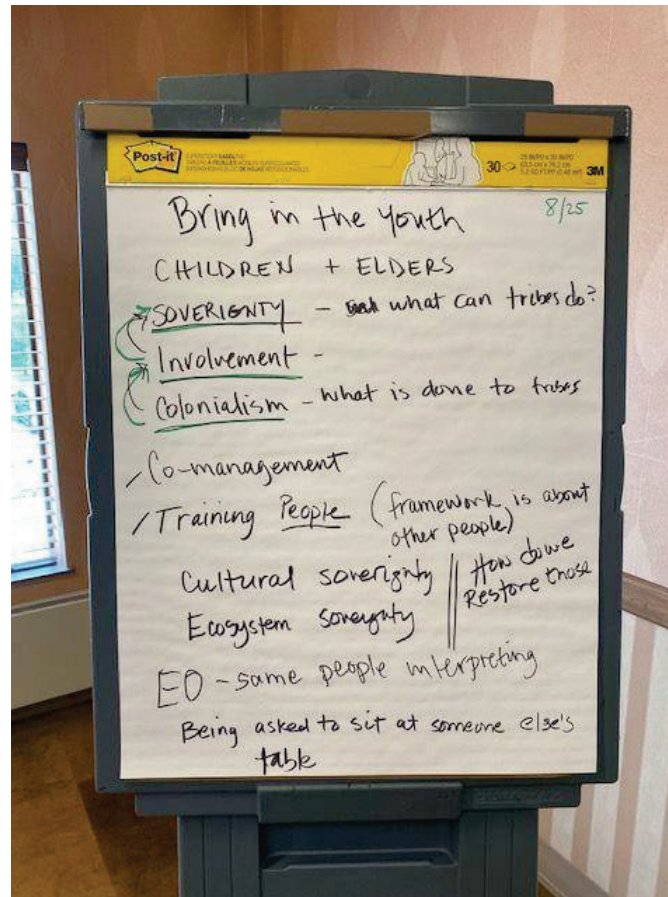 Post-it
30
3M
Bring in the youth
8/25
CHILDREN + ELDERS
SOVERIGNTY - what can tribes do?
Involvement -
Colonialism - What is done to tribes
/Co-management
/Training People (framework is about
other people)
Cultural soverignty
Ecosystem
How do we
Restore those
EO - same people interpreting
Being asked to sit at someone else's
table